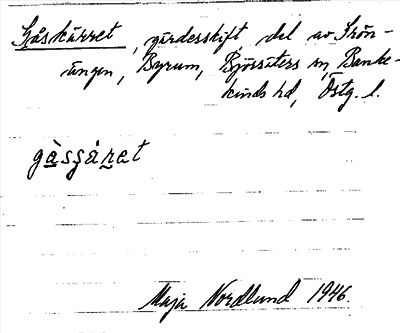 Gåskärret, gärdesskift, del av Skön-
ängen, Byrum, Björsäters sn, Banke-
kinds hd, Östg. l.
gåsɕäret
Maja Nordlund 1946.